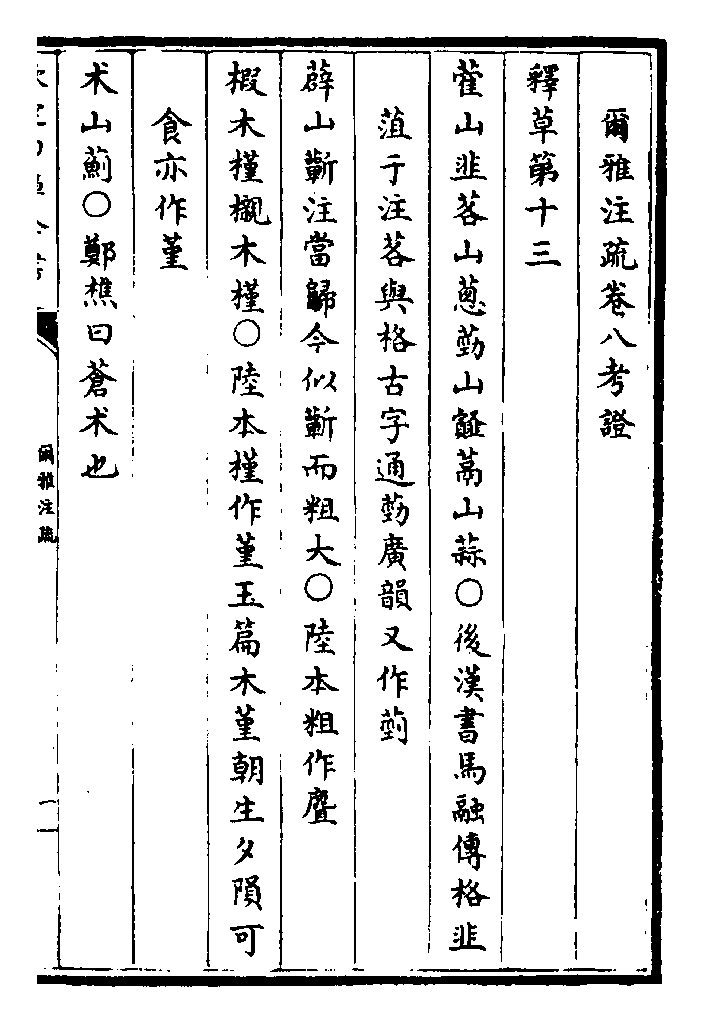 爾雅注疏卷八考證
釋草第十三
藿山韭茖山葱勤山䪥蒚山蒜○後漢書馬融傳格韭
菹于注茖與格古字通勤廣韻又作葝
薜山蘄注當歸今似蘄而粗大○陸本粗作麆
椴木槿櫬木槿○陸本槿作堇玉篇木堇朝生夕隕可
食亦作堇
术山薊○鄭樵曰蒼术也
爾雅注疏
一